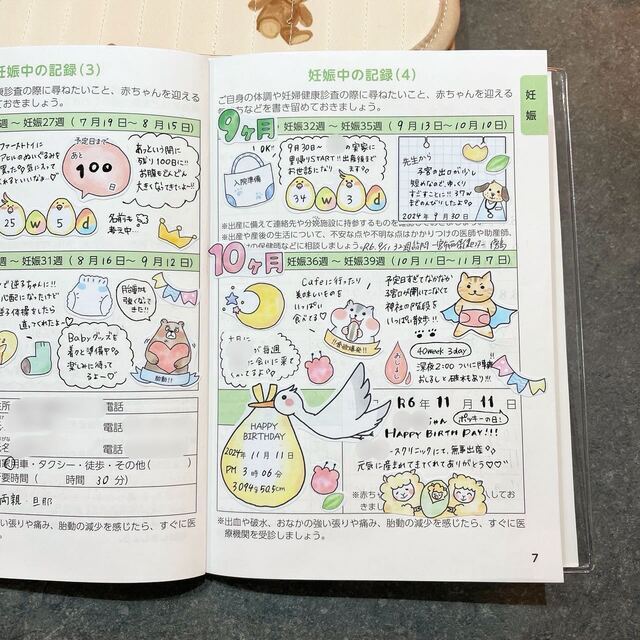 妊娠中の記録(3)
康診査の際に尋ねたいこと、赤ちゃんを迎える
ておきましょう。
~妊娠27週 (7月19日~8月15日)
予定日まで
あと
100
日
あっという間に
残り100日!!
お腹もどんどん
大きくなってきたー!!
25 w 5 d
名前も
考え中
妊娠31週 (8月16日~9月12日)
胎動も
強くなって
きた!!
Babyグッズを
着々と準備中
楽しみに待って
るよ〜♡
胎動!!
住所
電話
電話
氏名
電話
車・タクシー・徒歩・その他(
時間 30分)
両親・旦那
い張りや痛み、胎動の減少を感じたら、すぐに医
妊娠中の記録(4)
ご自身の体調や妊婦健康診査の際に尋ねたいこと、赤ちゃんを迎える
ちなどを書き留めておきましょう。
妊娠
9ヶ月
妊娠32週 ~ 妊娠35週 (9月13日~10月10日)
OK!
入院準備
9月30日〜
の実家に
里帰りSTART!!出産後まで
お世話になります
34 w 3 d
先生から
子宮の出口が少し
短めなので、ゆっくり
すごすことに!! 37wま
でのんびりしたよ
2024年9月30日
※出産に備えて連絡先や分娩施設に持参するものを確認
※出産や産後の生活について、不安な点や不明な点はかかりつけの医師や助産師、
の保健師などに相談しましょう
10ヶ月
妊娠36週 ~ 妊娠39週 (10月11日~11月7日)
Cafeに行ったり
美味しいものを
いっぱい
食べてる♡
!!食欲爆発!!
予定日すぎてなかなか
子宮口が開いてなくて
神社の階段を
いっぱい散歩!!
が毎週
に会いに来て
くれてるよ
おしるし
40week 3day
深夜2:00 ついに
おしるしと破水もあり!!
HAPPY
BIRTHDAY
2024年11月11日
PM 3時06分
3094g 50.5cm
R6年11月11日
ポッキーの日!
HAPPY BIRTHDAY!!!
クリニックにて、無事出産
元気に産まれてきてくれてありがとう♡♡♡
※赤ち
してお
きまし
※出血や破水、おなかの強い張りや痛み、胎動の減少を感じたら、すぐに医
療機関を受診しましょう。
7